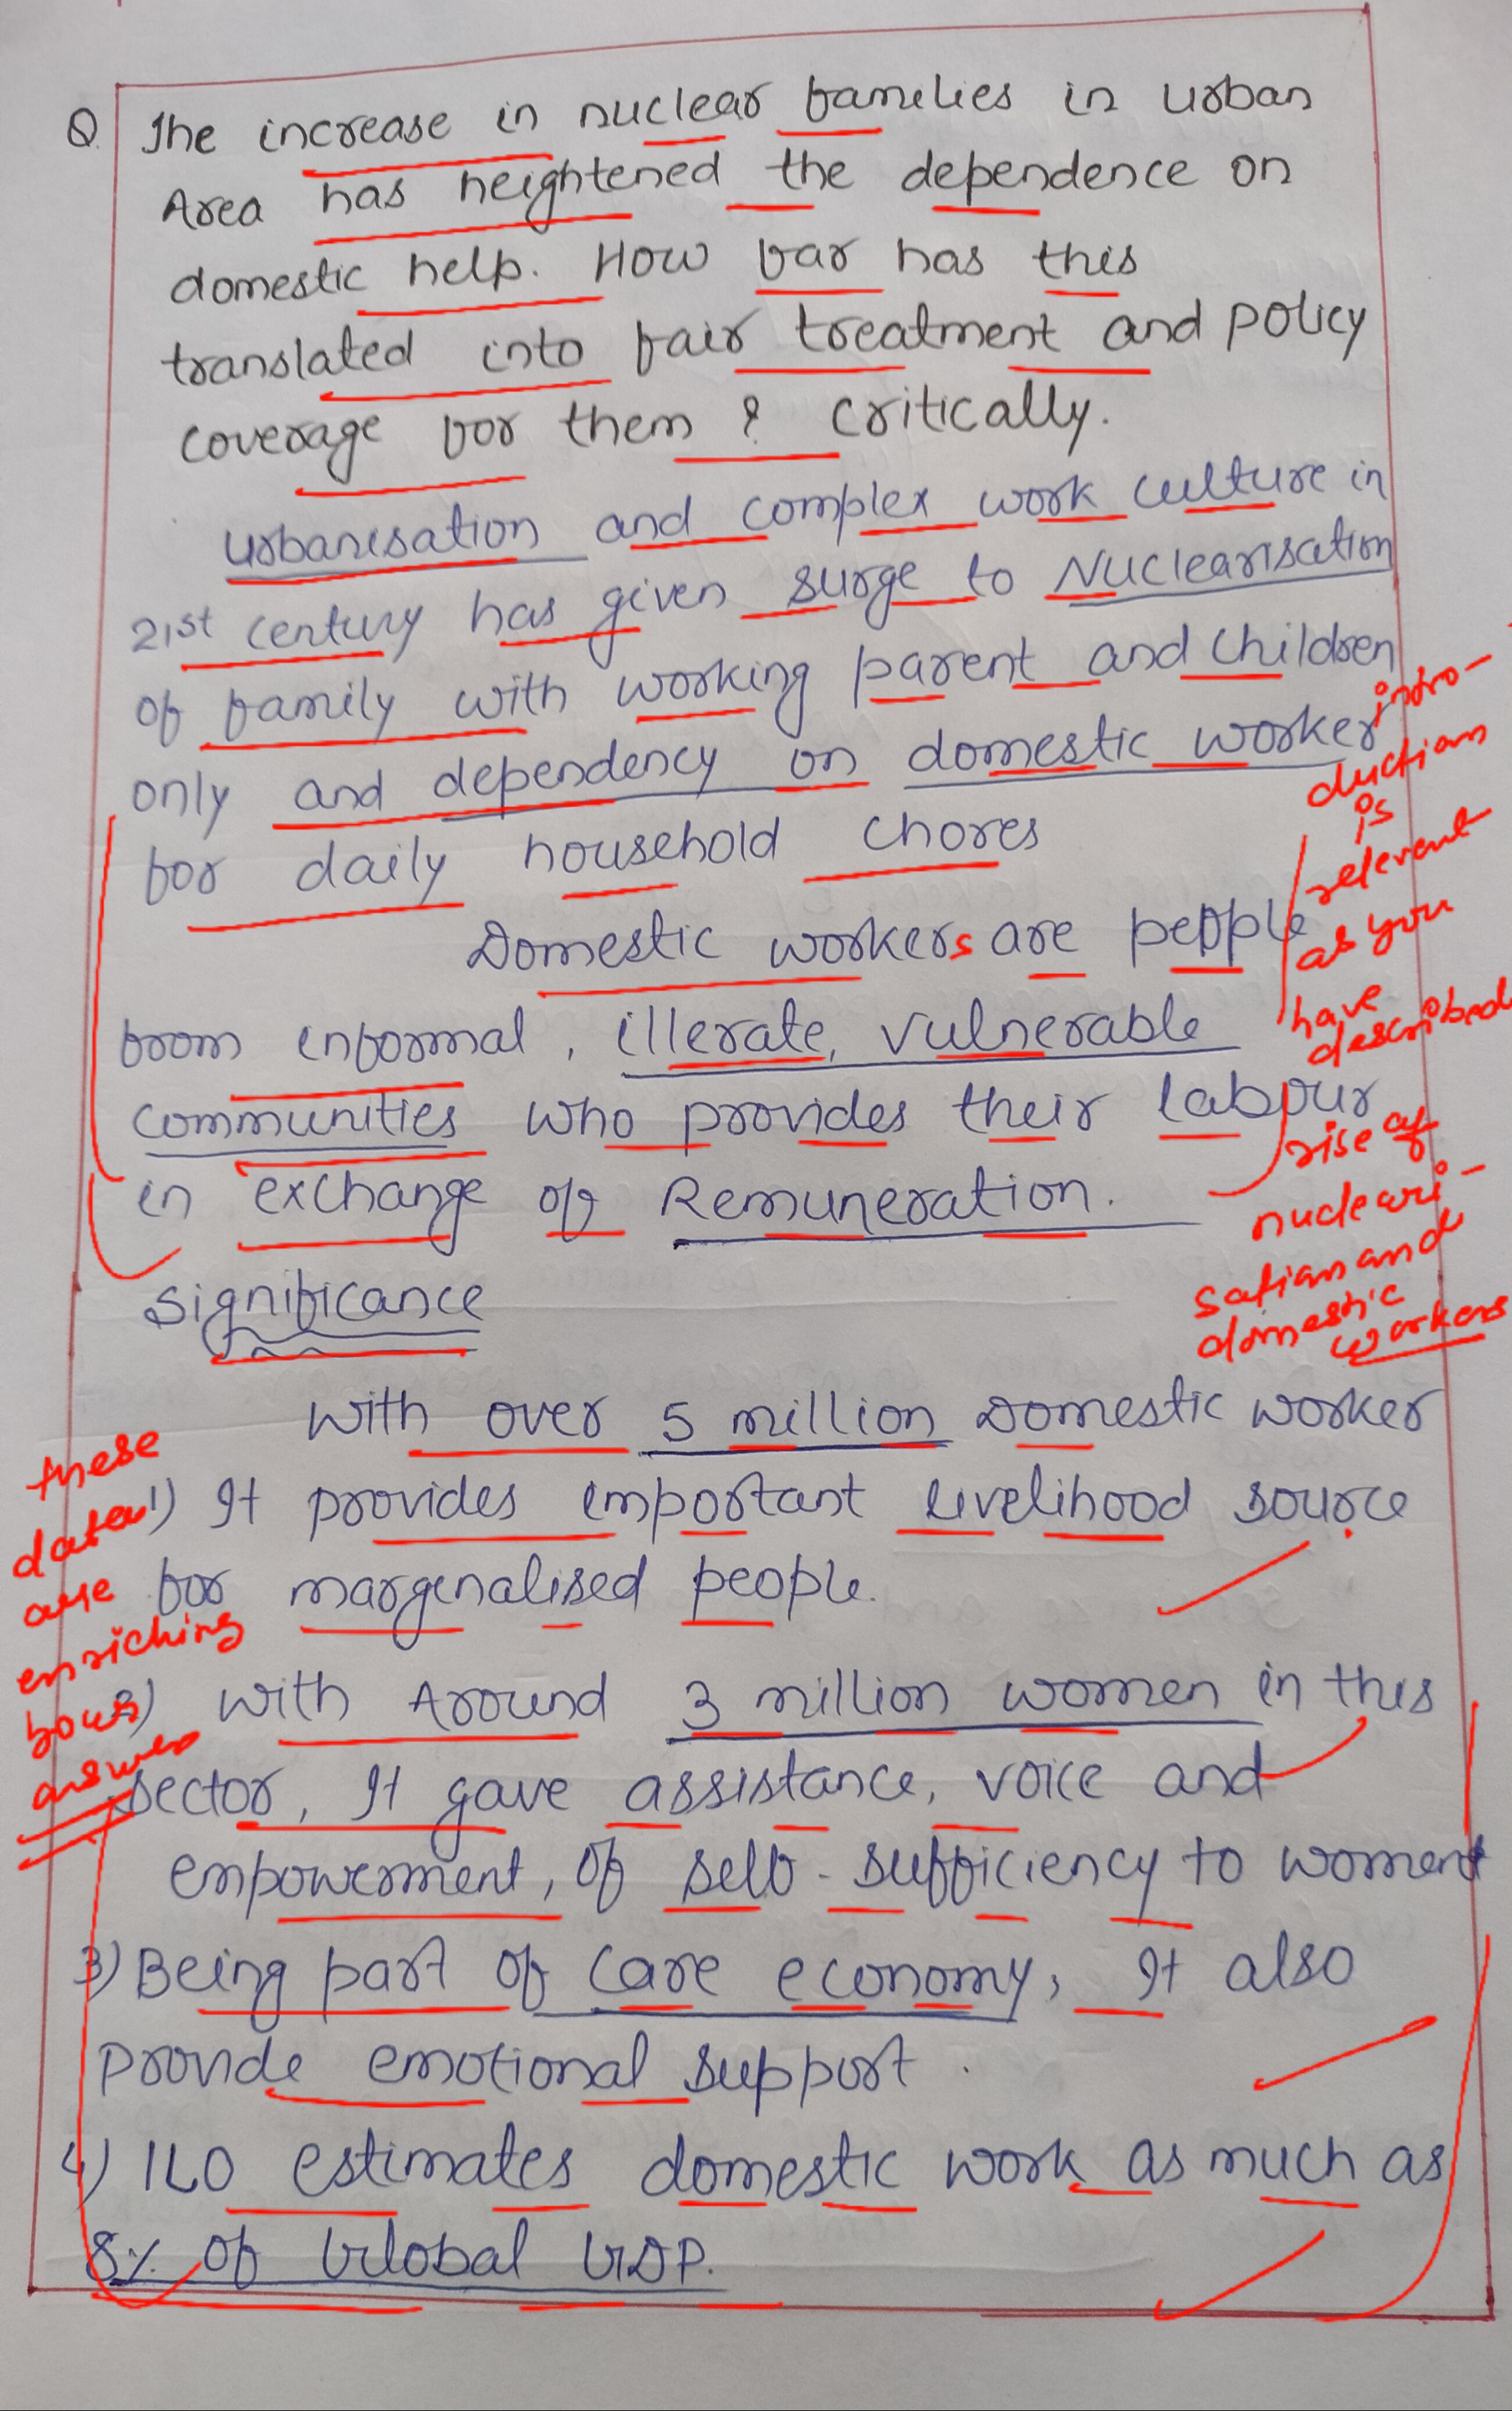 Q The increase in nuclear families in urban
Area has heightened the dependence on
domestic help. How far has this
translated into fair treatment and policy
coverage for them ? critically.
urbanisation and complex work culture in
21st century has given surge to Nuclearisation
of family with working parent and children
only and dependency on domestic worker
for daily household chores
Domestic workers are people
from informal, illerate, vulnerable
communities who provides their labour
in exchange of Remuneration.
intro-
duction
is
relevant
as you
have
described
rise of
nucleari-
sation and
domestic
workers
Significance
With over 5 million Domestic worker
1) It provides important livelihood source
for marginalised people.
2) With Around 3 million women in this
sector, It gave assistance, voice and
empowerment, of self-sufficiency to women
3) Being part of care economy, It also
provide emotional support.
4) ILO estimates domestic work as much as
8% of Global GDP.
these
data
are
enriching
your
answer